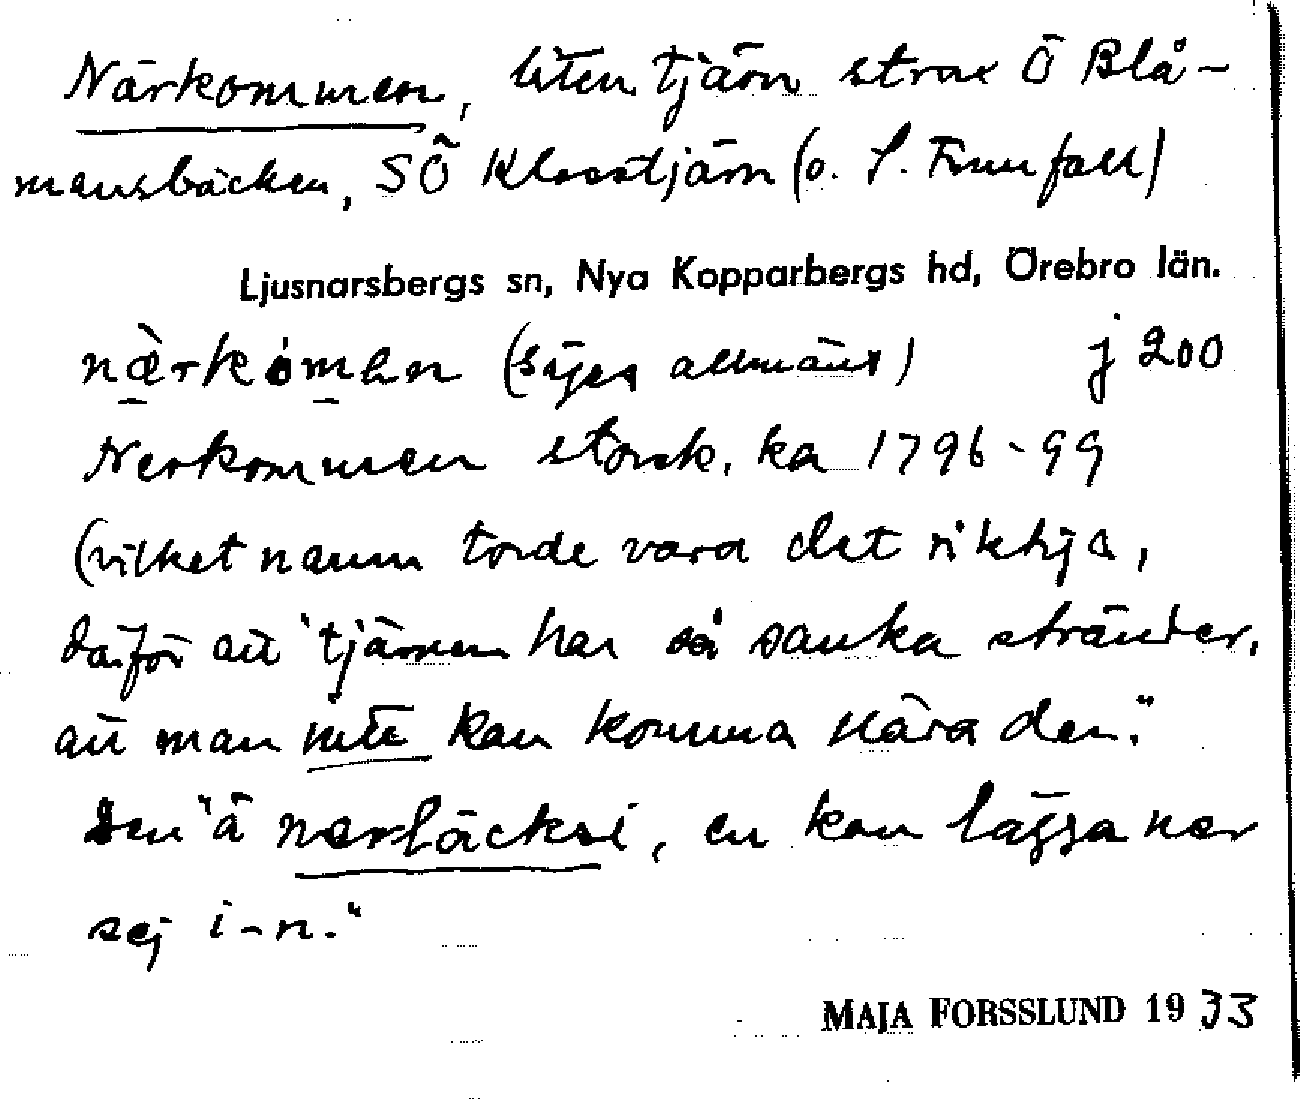 Närkommen, liten tjärn strax Ö Blå-
mansbäcken, SÖ Klosstjärn (o. S. Finnfall)
Ljusnarsbergs sn, Nya Kopparbergs hd, Örebro län.
nærkomən (säges allmänt) j 200
Nerkommen storsk. ka 1796-99
(vilket namn torde vara det riktija,
därför att "tjärnen har så sanka stränder,
att man inte kan komma nära den."
Den "ä nerläcksi, en kan lägga ner
sej i-n."
MAJA FORSSLUND 1933